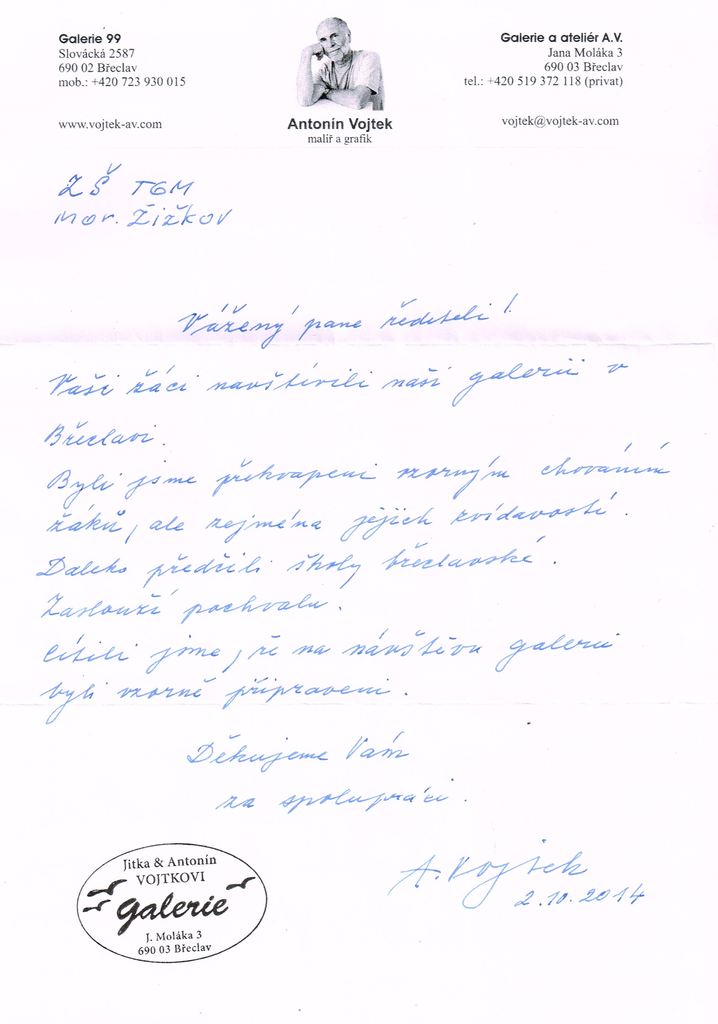 Galerie 99
Slovácká 2587
690 02 Břeclav
mob.: +420 723 930 015
www.vojtek-av.com
Antonín Vojtek
malíř a grafik
Galerie a ateliér A.V.
Jana Moláka 3
690 03 Břeclav
tel.: +420 519 372 118 (privat)
vojtek@vojtek-av.com
ZŠ TGM
Mor. Žižkov
Vážený pane řediteli!
Vaši žáci navštívili naši galerii v
Břeclavi.
Byli jsme překvapeni vzorným chováním
žáků, ale zejména jejich zvídavostí.
Daleko předčili školy břeclavské.
Zaslouží pochvalu.
Cítili jsme, že na návštěvu galerii
byli vzorně připraveni.
Děkujeme Vám
za spolupráci.
A. Vojtek
2.10.2014
Jitka & Antonín
VOJTKOVI
galerie
J. Moláka 3
690 03 Břeclav